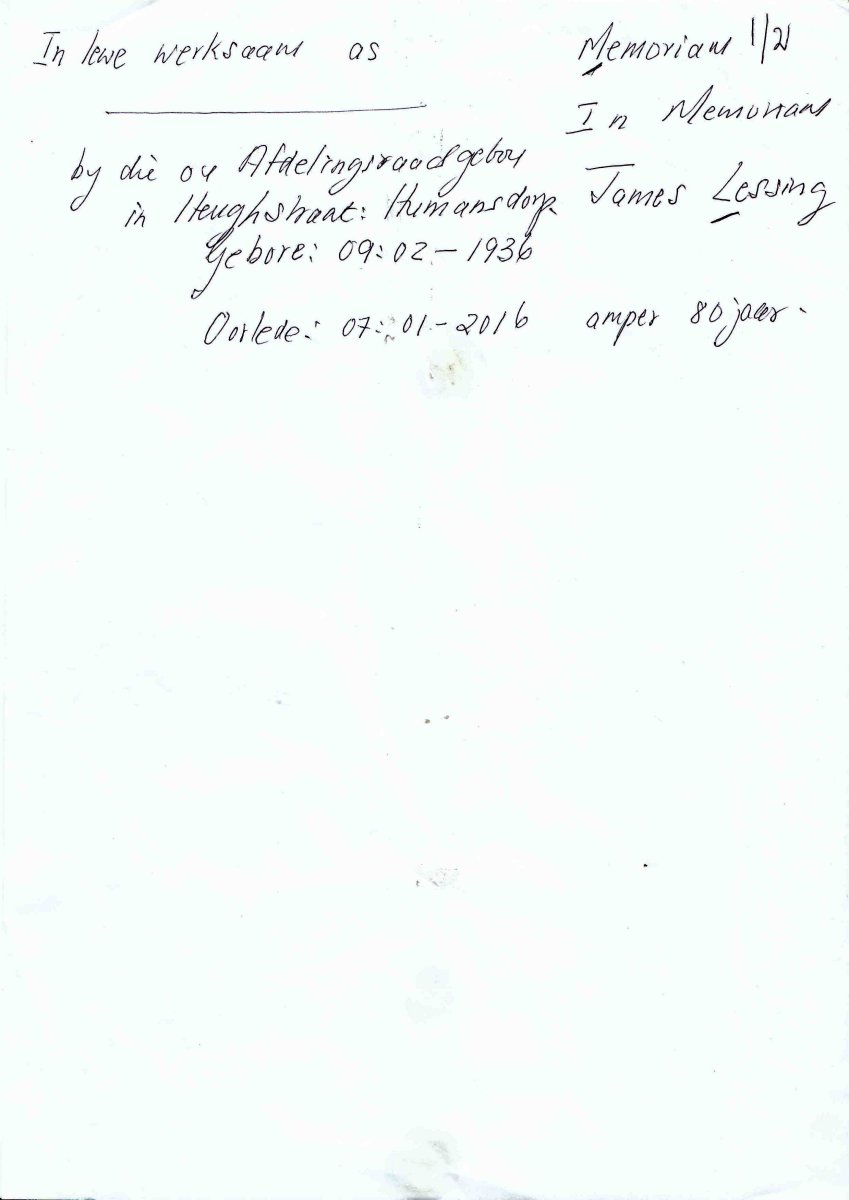 In lewe werksaam as
Memoriam 1/21
In Memoriam
by die ou Afdelingsraadgebou
in Heughstraat: Humansdorp.
James Lessing
Gebore: 09:02-1936
Oorlede: 07:01-2016 amper 80 jaar.